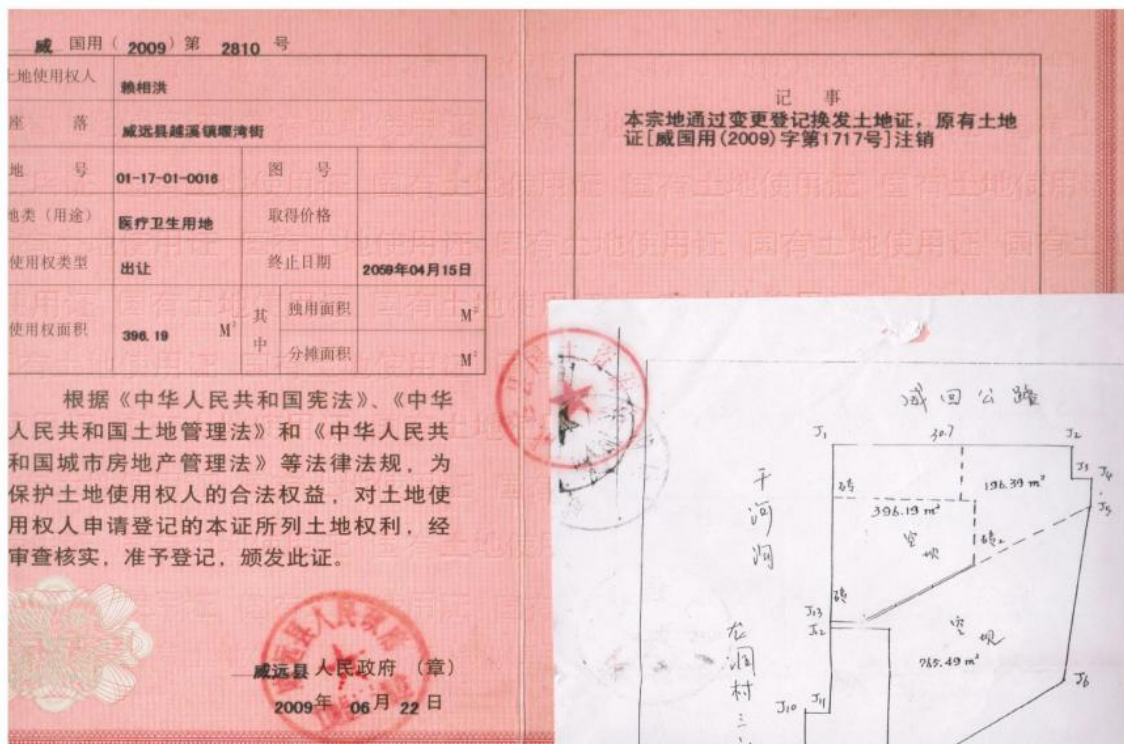 威 国用（2009）第 2810 号
土地使用权人 赖相洪
座 落 威远县越溪镇堰湾街
地 号 01-17-01-0016 图 号
地类（用途） 医疗卫生用地 取得价格
使用权类型 出让 终止日期 2059年04月15日
使用权面积 396.19 M² 其中 独用面积 M²
分摊面积 M²
根据《中华人民共和国宪法》、《中华
人民共和国土地管理法》和《中华人民共
和国城市房地产管理法》等法律法规，为
保护土地使用权人的合法权益，对土地使
用权人申请登记的本证所列土地权利，经
审查核实，准予登记，颁发此证。
威远县人民政府（章）
2009年 06月 22日
记 事
本宗地通过变更登记换发土地证，原有土地
证[威国用(2009)字第1717号]注销
威回公路
J1 30.7 J2
J3 J4
J5
196.39 m²
砖
396.19 m²
空坝
干河沟
砖
J13
J12
空坝
765.49 m²
J6
J10 J11
龙洞村三